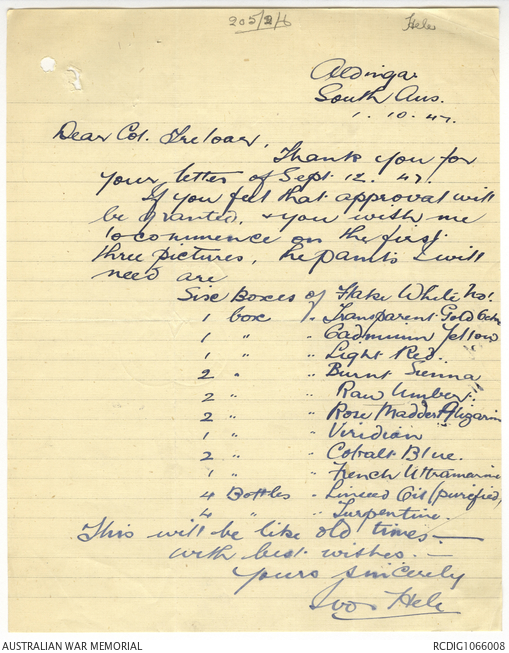 205/2/6
Hele
Aldinga.
South Aus.
1. 10. 47.
Dear Col. Treloar,
Thank you for
your letter of Sept. 12. 47.
If you feel that approval will
be granted, & you wish me
to commence on the first
three pictures, the paints I will
need are
Six Boxes of Flake White No 1.
1 box " Transparent Gold Ochre
1 " " Cadmium Yellow
1 " " Light Red.
2 " " Burnt Sienna
2 " " Raw Umber.
2 " " Rose Madder Alizarin
1 " " Viridian
2 " " Cobalt Blue.
1 " " French Ultramarine
4 Bottles " Linseed Oil (purefied)
4 " " Turpentine.
This will be like old times —
with best wishes. —
Yours sincerely
Ivor Hele
AUSTRALIAN WAR MEMORIAL
RCDIG1066008